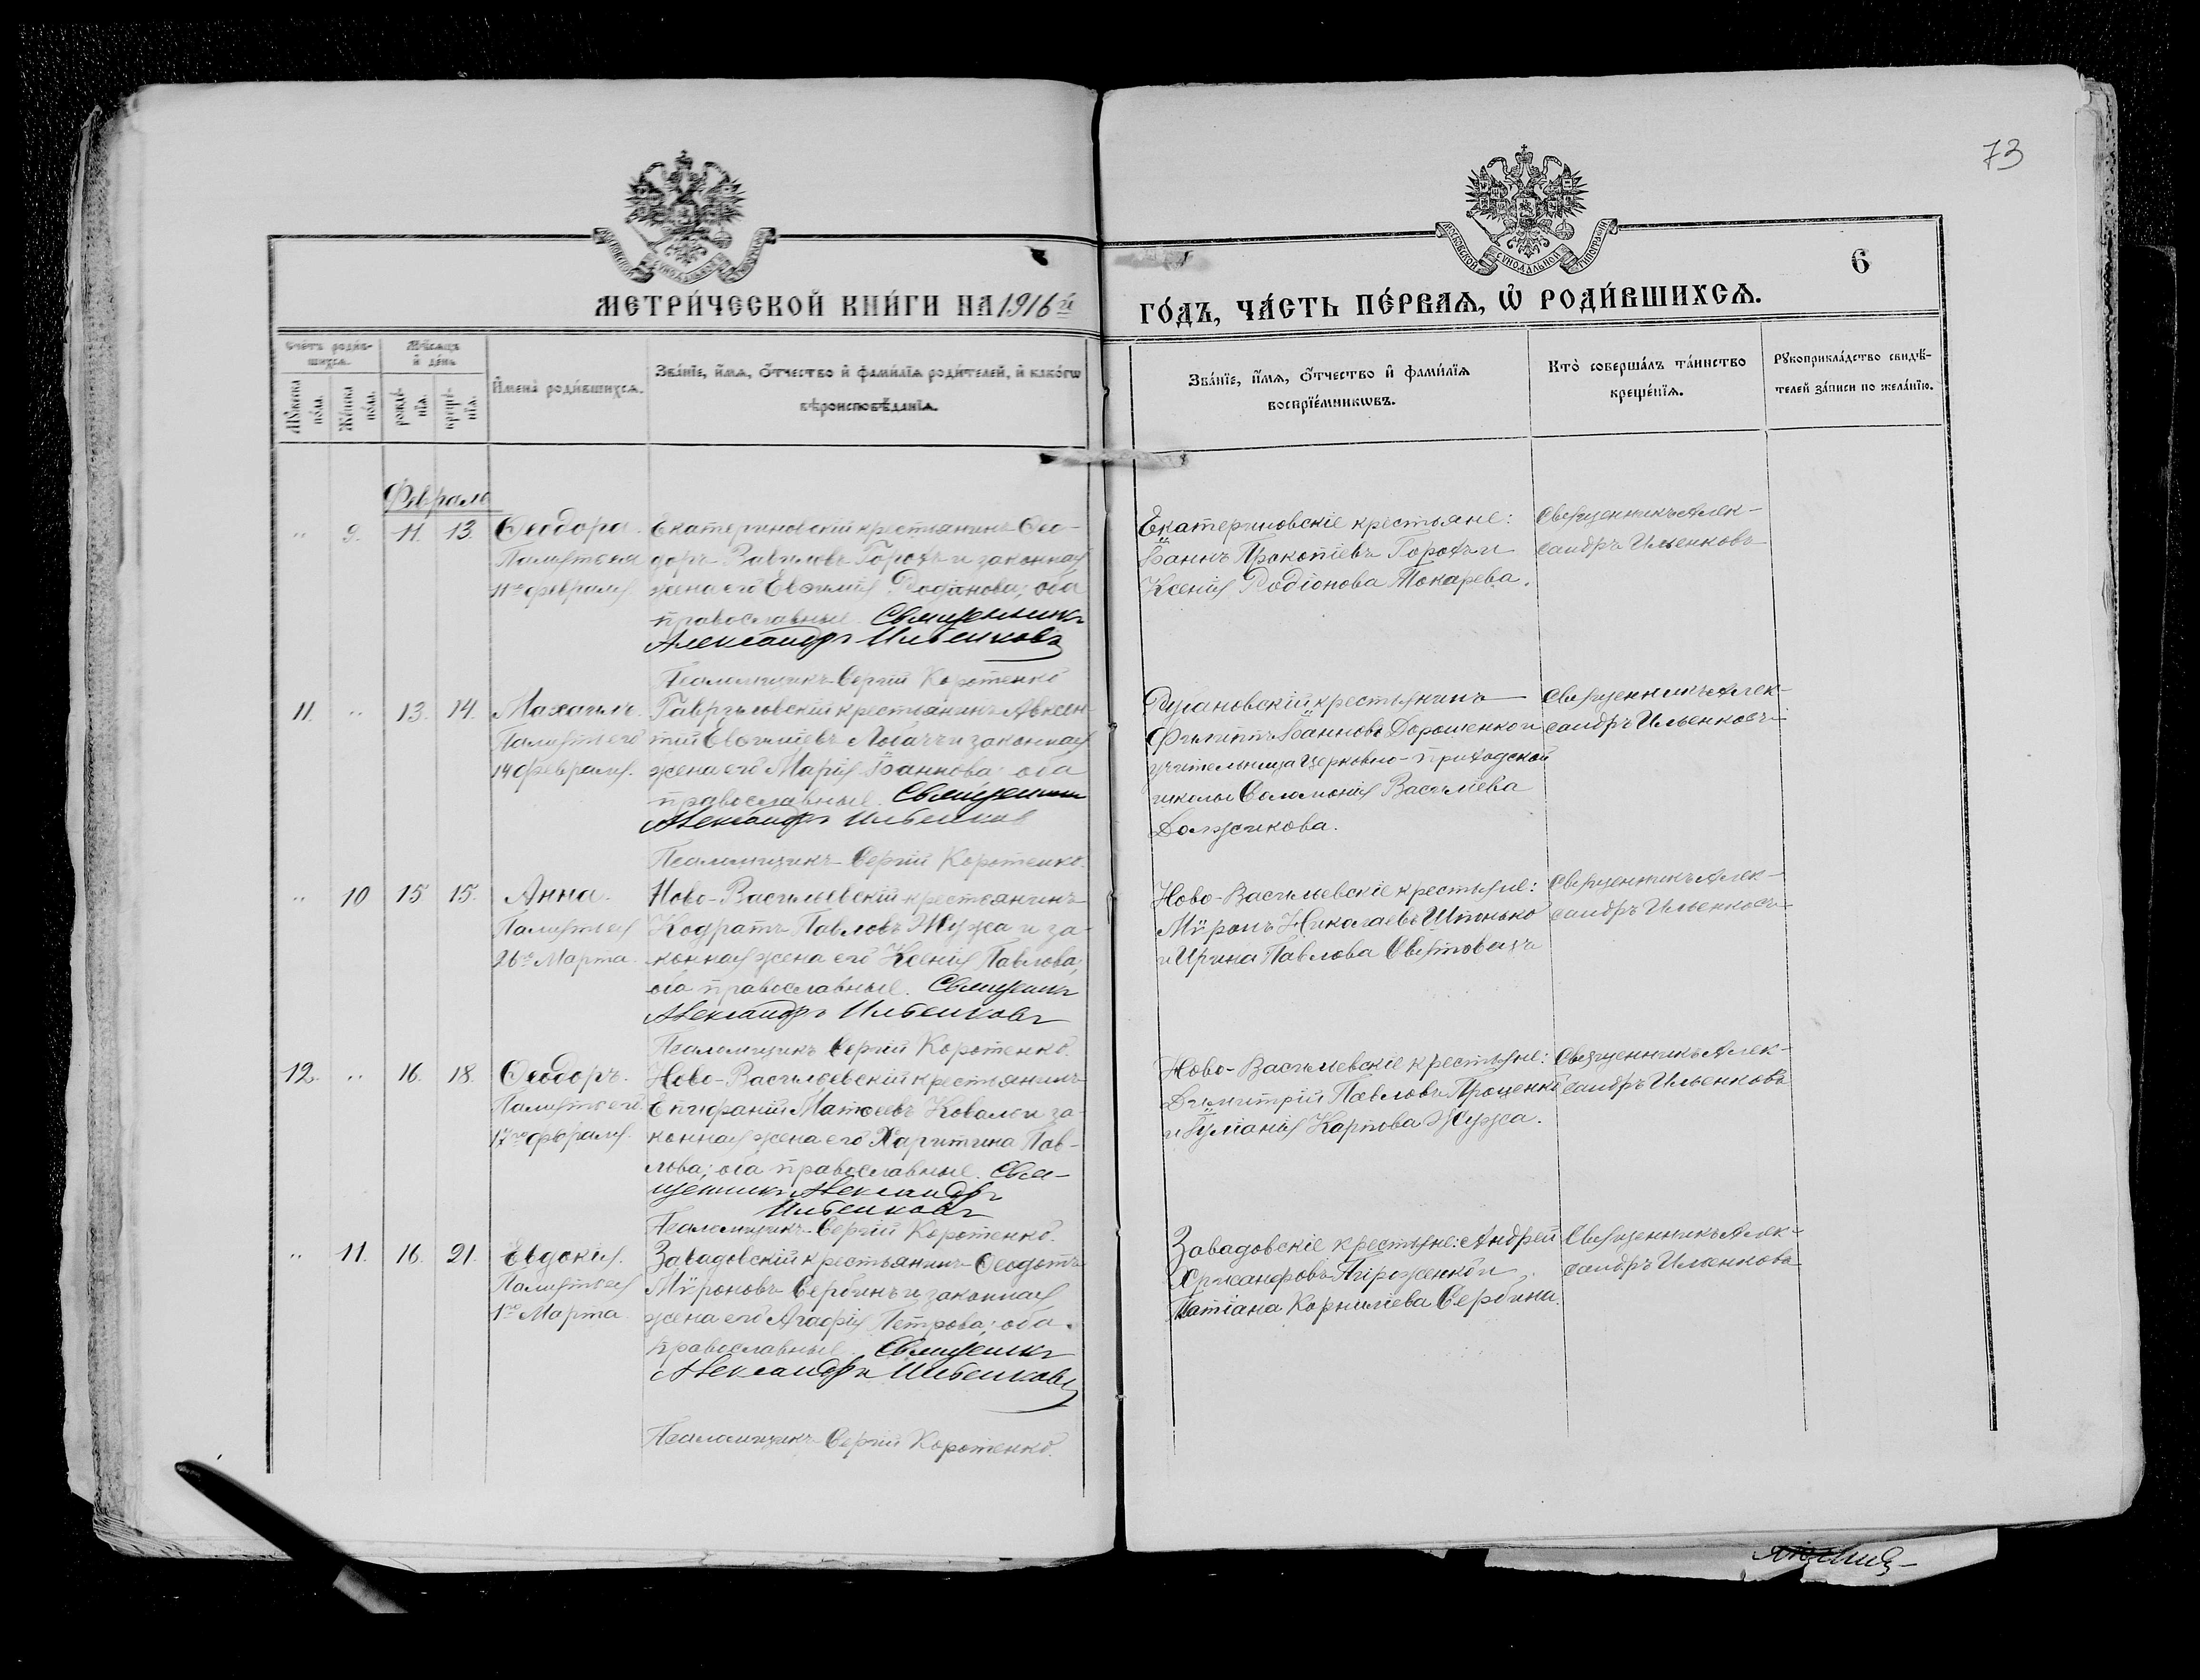 73
МОСКОВСКОЙ СѴНОДАЛЬНОЙ ТИПОГРАФІИ
6
МЕТРИ́ЧЕСКОЙ КНИ́ГИ НА 1916й
ГО́ДЪ, ЧА́СТЬ ПЕ́РВАѦ, Ѡ҆ РОДИ́ВШИХСѦ.
Сче́тъ роди́в-
шихсѧ.
Мѣ́сѧцъ
и҆ де́нь
Мꙋ́жеска
по́ла.
Же́нска
по́ла.
рожде́-
нїѧ.
креще́-
нїѧ.
И҆мена̀ роди́вшихсѧ.
Зва́нїе, и҆́мѧ, ѻ҆́тчество и҆ фами́лїѧ роди́телей, и҆ како́гѡ
вѣроисповѣ́данїѧ.
Зва́нїе, и҆́мѧ, ѻ҆́тчество и҆ фами́лїѧ
воспрїе́мникѡвъ.
Кто̀ соверша́лъ та́инство
креще́нїѧ.
Рꙋкоприкла́дство свидѣ́-
телей за́писи по жела́нїю.
Февраль
" 9. 11. 13. Ѳеодора.
Память ея
11го февраля.
Екатериновскій крестьянинъ Ѳео-
доръ Вавиловъ Горохъ и законная
жена его Евѳимія Родіонова; оба
православные. Священникъ
Александръ Ильенковъ
Псаломщикъ Сергій Коротенко
Екатериновскіе крестьяне:
Іоаннъ Прокопіевъ Горохъ и
Ксенія Родіонова Токарева.
Священникъ Алек-
сандръ Ильенковъ
11. " 13. 14. Михаилъ.
Память его
14 Февраля.
Гавриловскій крестьянинъ Авксен-
тій Евѳиміевъ Логачъ и законная
жена его Марія Іоаннова; оба
православные. Священникъ
Александръ Ильенковъ
Псаломщикъ Сергій Коротенко.
крестьянинъ
Филиппъ Іоанновъ Дорошенко и
учительница церковно-приходской
школы Соломонія Василіева
Должикова.
Священникъ Алек-
сандръ Ильенковъ
" 10 15 15. Анна.
Память ея
26го Марта.
Ново-Васильевскій крестьянинъ
Кодратъ Павловъ Жужа и за-
конная жена его Ксенія Павлова;
оба православные. Священникъ
Александръ Ильенковъ
Псаломщикъ Сергій Коротенко.
Ново-Васильевскіе крестьяне:
Мѵронъ Николаевъ Шпинько
и Ирина Павлова
Священникъ Алек-
сандръ Ильенковъ
12. " 16. 18. Ѳеодоръ.
Память его
17го февраля.
Ново-Васильевскій крестьянинъ
Епифаній Матѳеевъ Коваль и за-
конная жена его Харитина Пав-
лова; оба православные. Свя-
щенникъ Александръ
Ильенковъ
Псаломщикъ Сергій Коротенко.
Ново-Васильевскіе крестьяне:
Димитрій Павловъ Проценко
и Іуліанія Карпова Жужа.
Священникъ Алек-
сандръ Ильенковъ
" 11. 16. 21. Евдокія.
Память ея
1го Марта
Завадовскій крестьянинъ Ѳеодотъ
Мѵроновъ Сербинъ и законная
жена его Агафія Петрова; оба
православные. Священникъ
Александръ Ильенковъ
Псаломщикъ Сергій Коротенко.
Завадовскіе крестьяне: Андрей
Хрисанфовъ и
Татіана Корниліева Сербина.
Священникъ Алек-
сандръ Ильенковъ